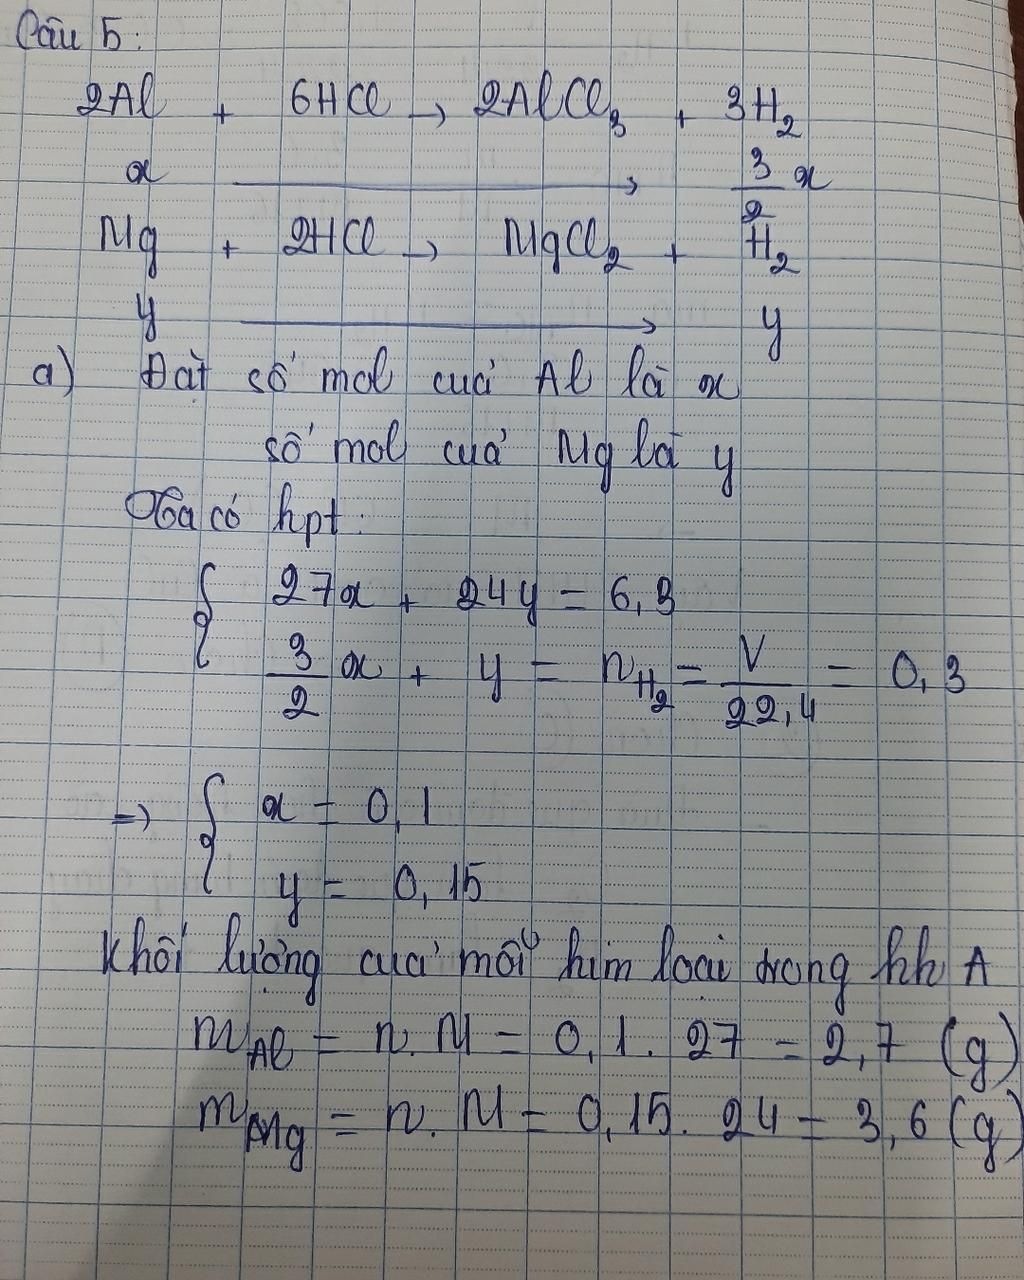 Câu 5:
2Al + 6HCl → 2AlCl₃ + 3H₂
x → 3/2 x
Mg + 2HCl → MgCl₂ + H₂
y → y
a) Đặt số mol của Al là x
số mol của Mg là y
Ta có hpt:
{ 27x + 24y = 6,3
3/2 x + y = n_H₂ = V/22,4 = 0,3
=> { x = 0,1
y = 0,15
Khối lượng của mỗi kim loại trong hh A
m_Al = n.M = 0,1.27 = 2,7 (g)
m_Mg = n.M = 0,15.24 = 3,6 (g)